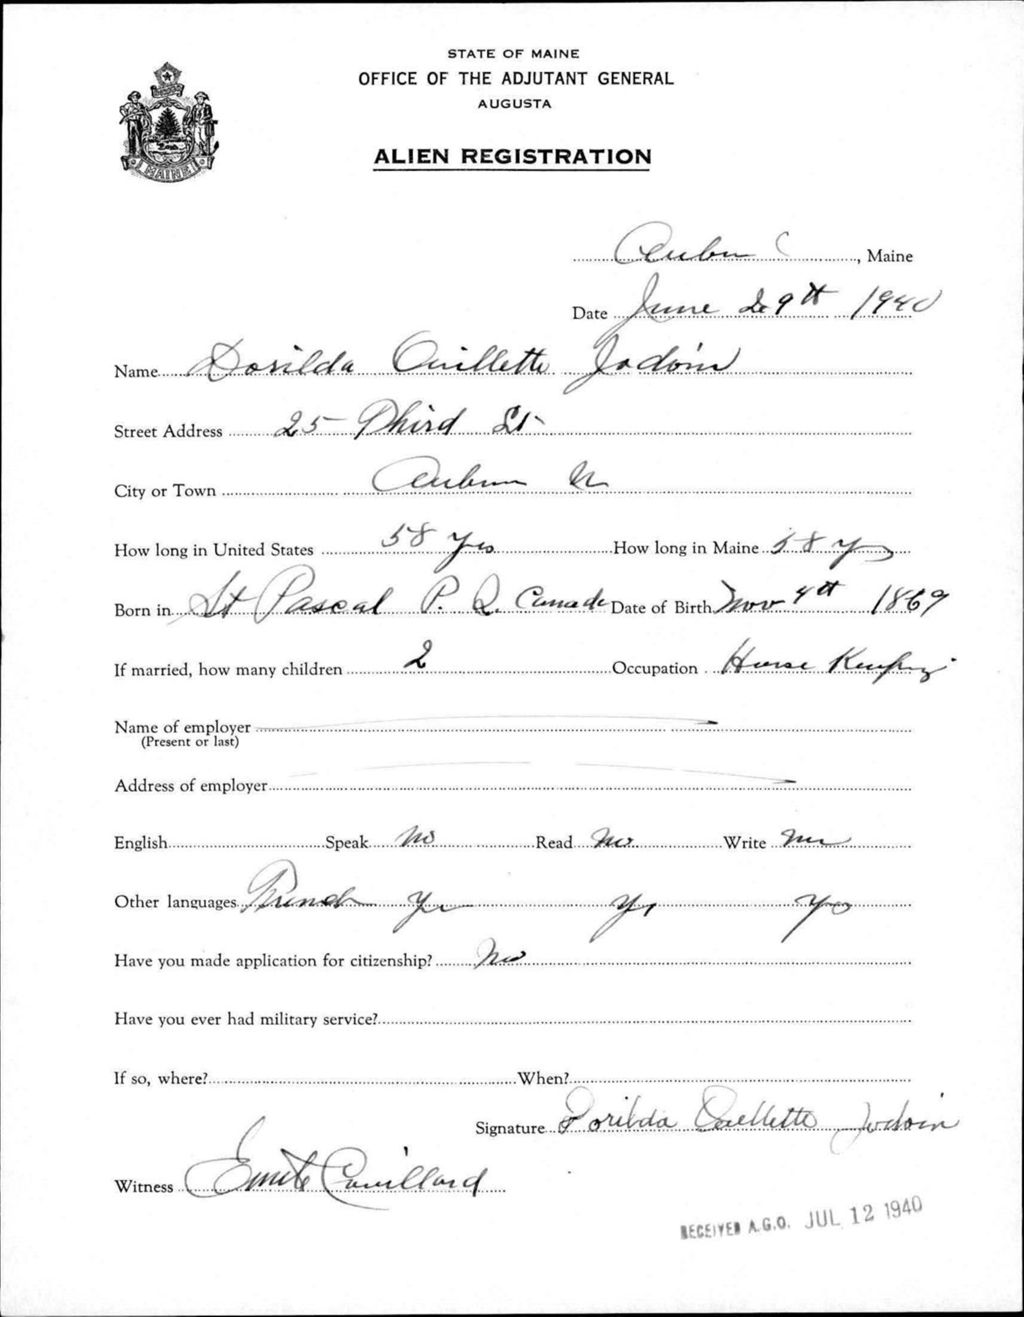 STATE OF MAINE
OFFICE OF THE ADJUTANT GENERAL
AUGUSTA
ALIEN REGISTRATION
MAINE
Auburn, Maine
Date June 29th 1940
Name Dorilda Ouillette Jodoin
Street Address 25 Third St
City or Town Auburn
How long in United States 58 yrs How long in Maine 58 yrs
Born in St Pascal P. Q. Canada Date of Birth Nov 4th 1869
If married, how many children 2 Occupation House Keeping
Name of employer
(Present or last)
Address of employer
English Speak No Read No Write No
Other languages French Yes Yes Yes
Have you made application for citizenship? No
Have you ever had military service?
If so, where? When?
Signature Dorilda Ouellette Jodoin
Witness Emile Couillard
RECEIVED A.G.O. JUL 12 1940